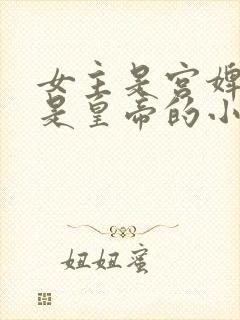 女主是宫婢
是皇帝的小
妞妞蜜